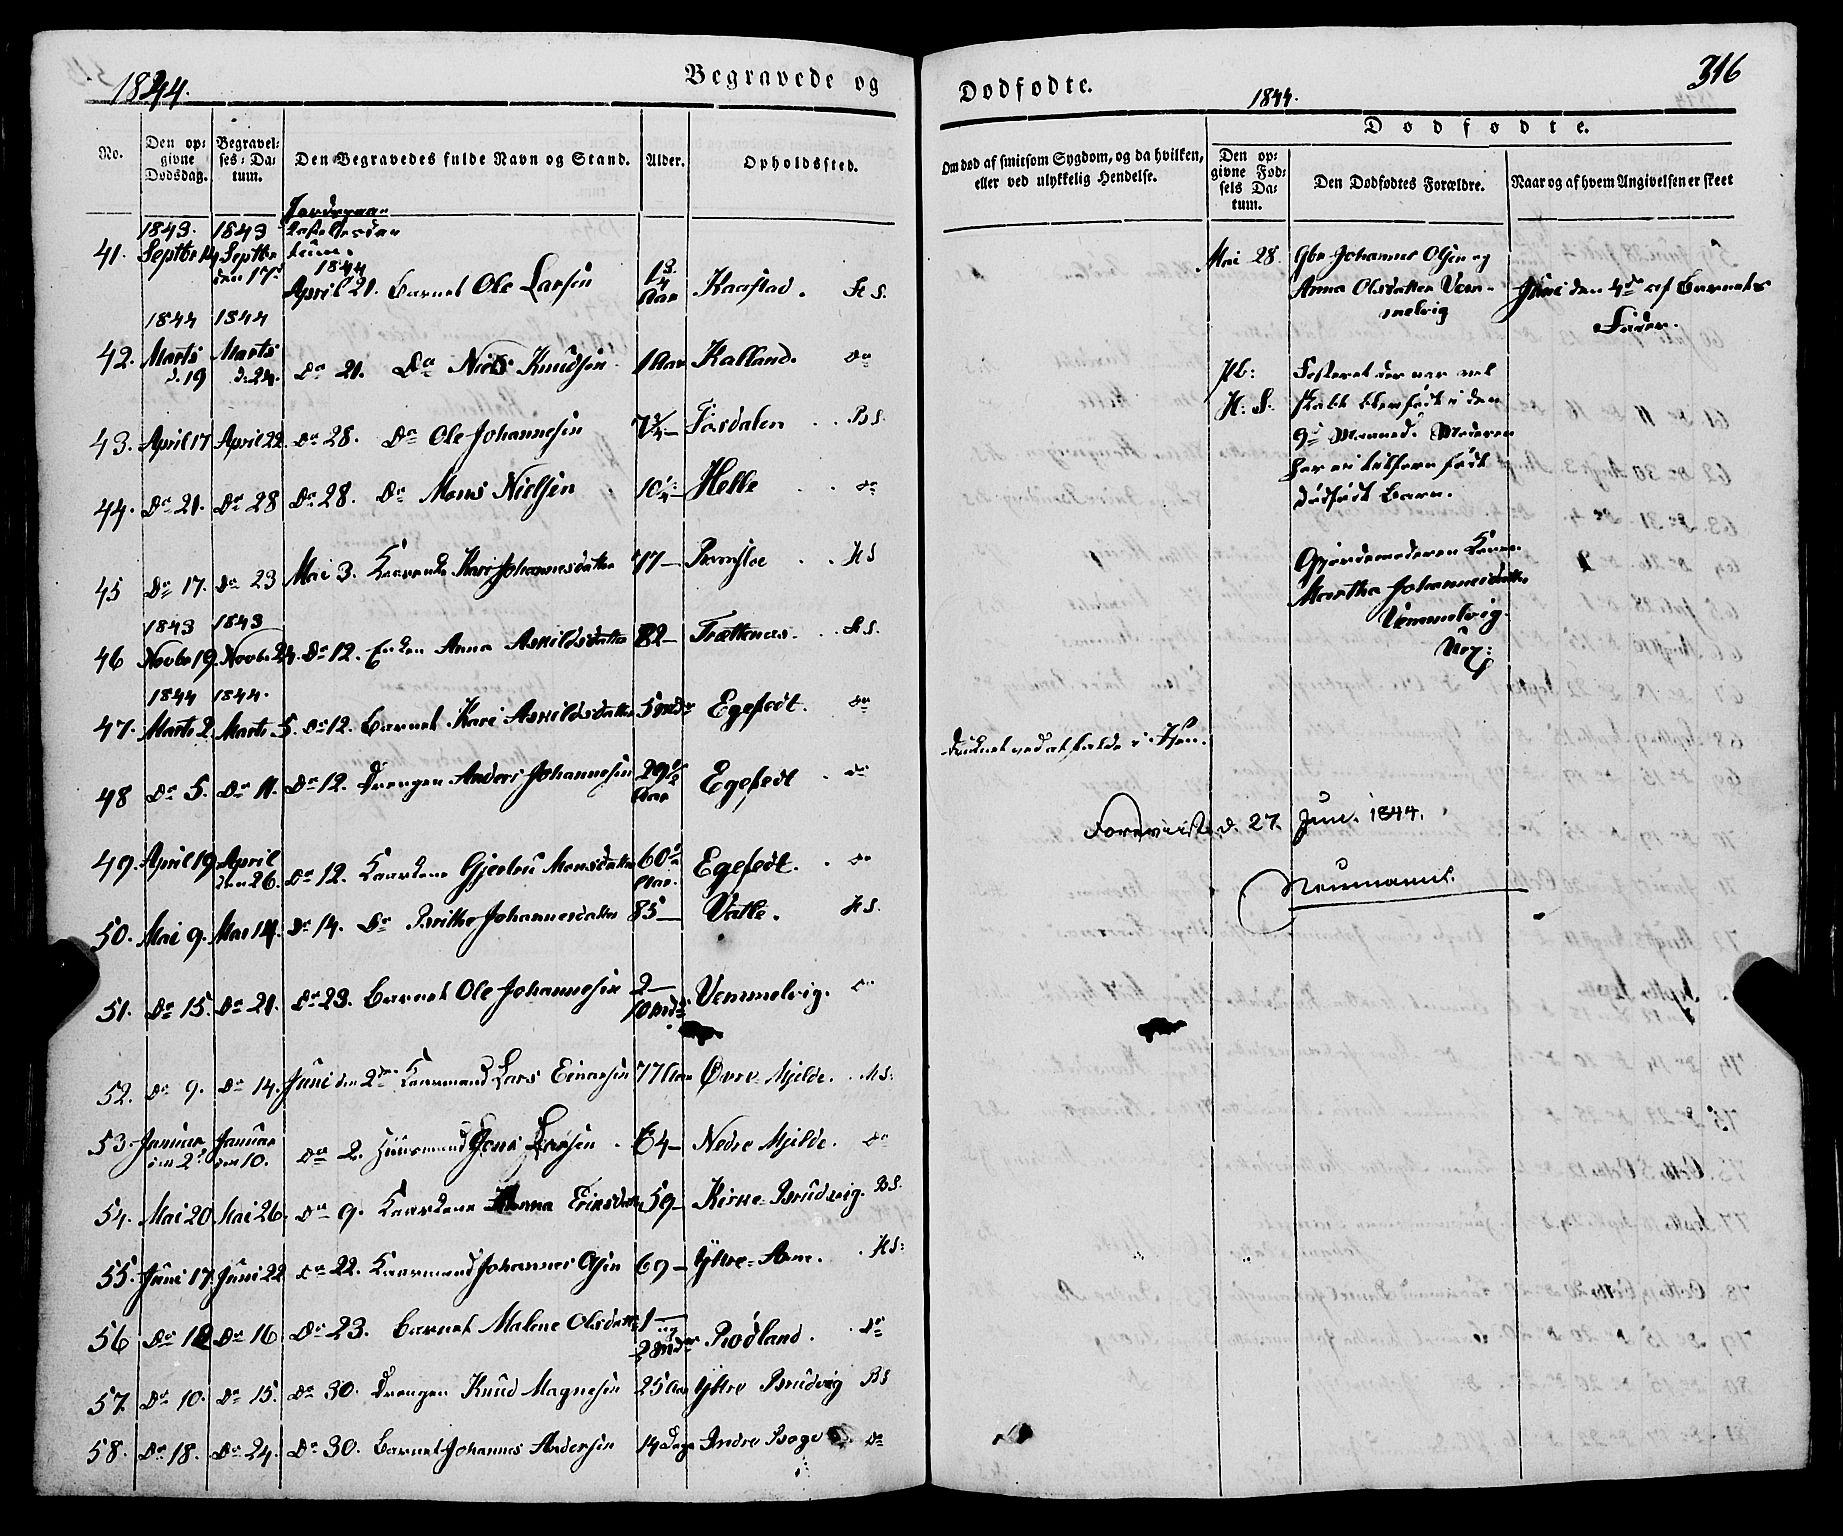 1844.
Begravede og
No.
Den op-
givne
Dödsdag.
Begravel-
ses-Da-
tum.
Den Begravedes fulde Navn og Stand.
Alder.
Opholdssted.
Jordepaa-
kastelsesda-
tum.
41. 1843. Septbr 14 1843 Septbr den 17d 1844 April 21. Barnet Ole Larsen 1 3/4 Aar Kaastad. H S.
42. 1844 Marts d. 19 1844 Marts d. 24. Do 21. Do Niels Knudsen 1 Aar Kalland. Do
43. April 17 April 22. Do 28. Do Ole Johannesen Tösdalen B S.
44. Do 21. Do 28 Do 28. Do Mons Nielsen 10 Helle Do
45 Do 17. Do 23 Mai 3. Kaarenke Kari Johannesdatter 77 H S
46 1843 Novbr 19. 1843 Novbr 24. Do 12. Enken Anna Askildsdatter 82 Trættenæs. H S.
47. 1844 Marts 2. 1844. Marts 5. Do 12. Barnet Kari Askildsdatter 5 Mdr Egefedt. Do
48 Do 5. Do 11. Do 12. Drengen Anders Johannesen 29 1/2 Aar Egefedt Do
49. April 19. April den 26. Do 12. Kaarkone Gjertru Monsdatter 60 Aar. Egefedt. Do
50. Mai 9. Mai 14. Do 14. Do Brithe Johannesdatter 85 Vatle. H S.
51. Do 15. Do 21. Do 23. Barnet Ole Johannesen 2 10 Mdr Vemmelvig. Do
52. Do 9. Do 14. Juni den 2den Kaarmand Lars Einarsen 77 Aar Övre Mjelde. H S.
53. Januar den 2d Januar den 10. Do 2. Huusmand Jens Larsen 64 Nedre Mjelde. Do
54. Mai 20 Mai 26. Do 9. Kaarkone Anna Eriksdatter 59 Kirke-Brudvig. B S.
55. Juni 17. Juni 22 Do 22. Kaarmand Johannes Olsen 69 Yttre-Arne. H S.
56 Do 12 Do 16 Do 23. Barnet Malene Olsdatter 1 og 2 Mdr Rödland. Do
57. Do 10. Do 15. Do 30. Drengen Knud Magnesen 25 Aar Yttre Brudvig B S
58. Do 18. Do 24. Do 30. Barnet Johannes Andersen 14 Dage Indre Boge Do
316
Dödfödte.
1844.
Om död af smitsom Sygdom, og da hvilken,
eller ved ulykkelig Hendelse.
Dödfödte.
Den op-
givne Föd-
sels Da-
tum.
Den Dödfödtes Forældre.
Naar og af hvem Angivelsen er skeet
Mai 28. Gbr Johannes Olsen og
Anna Olsdatter Vem-
melvig
Juni den 4de af Barnets
Fader.
H: S: Fosteret der var vel
skabt blev födt i den
9de Maaned. Moderen
har ei tilforn födt
dödfödt Barn.
Gjordemoderen
Martha Johannesdatter
Vemmelvig.
Druknet ved at falde i Söen.
Foreviist d. 27. Juni. 1844.
Neumann.